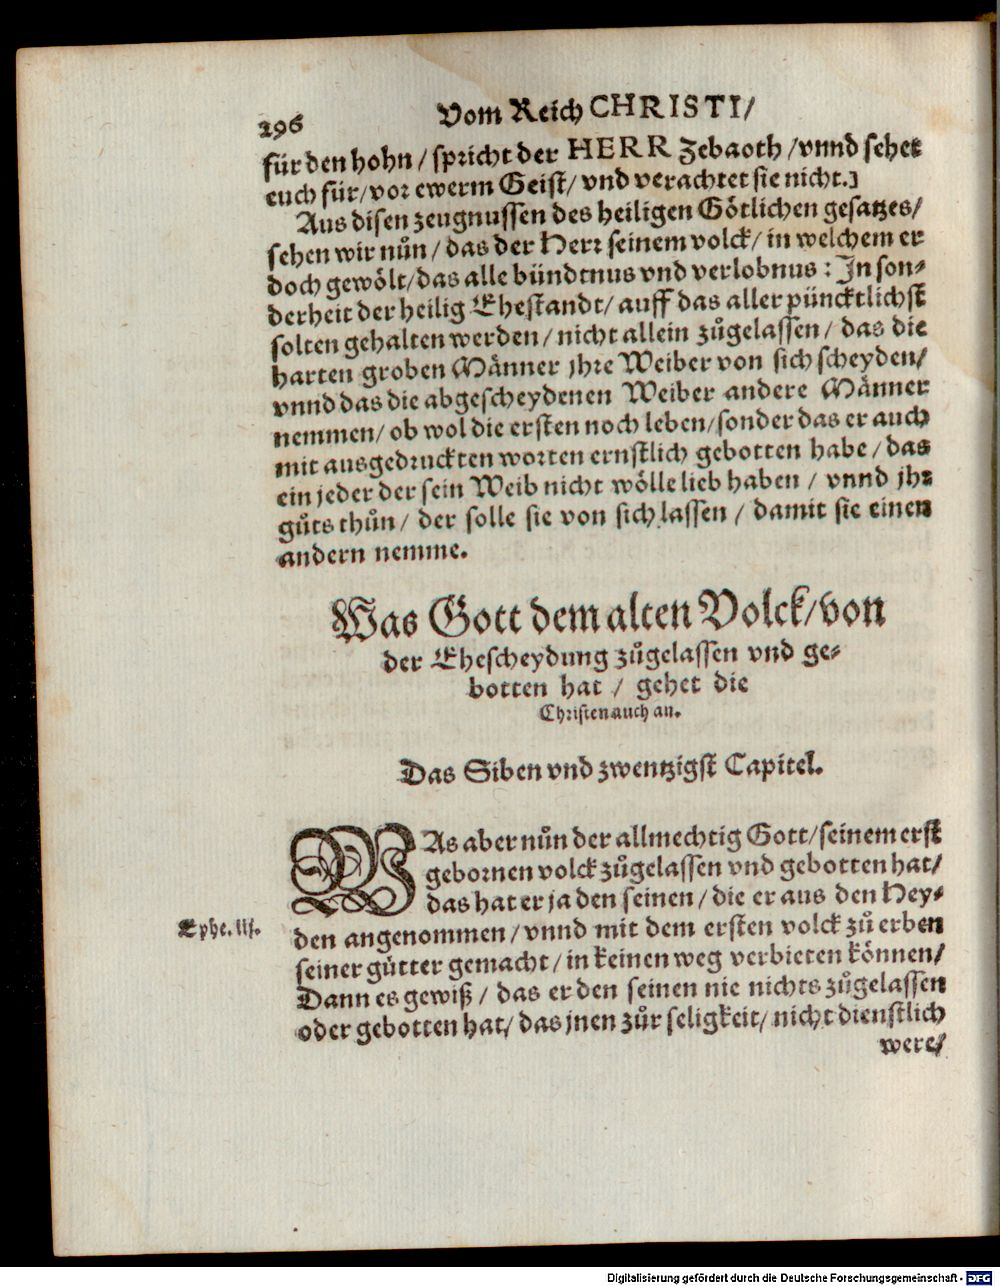 296 Vom Reich CHRISTI/
für den hohn / spricht der HERR Zebaoth / vnnd sehet
euch für / vor ewerm Geist / vnd verachtet sie nicht.]
Aus disen zeugnussen des heiligen Götlichen gesatzes/
sehen wir nůn / das der Herr seinem volck / in welchem er
doch gewölt / das alle bündtnus vnd verlobnus : In son⸗
derheit der heilig Ehestandt / auff das aller püncktlichst
solten gehalten werden / nicht allein zůgelassen / das die
harten groben Männer jhre Weiber von sich scheyden/
vnnd das die abgescheydenen Weiber andere Männer
nemmen / ob wol die ersten noch leben / sonder das er auch
mit ausgedruckten worten ernstlich gebotten habe / das
ein jeder der sein Weib nicht wölle lieb haben / vnnd jhr
gůts thůn / der solle sie von sich lassen / damit sie einen
andern nemme.
Was Gott dem alten Volck / von
der Ehescheydung zůgelassen vnd ge⸗
botten hat / gehet die
Christen auch an.
Das Siben vnd zwentzigst Capitel.
WAs aber nůn der allmechtig Gott / seinem erst
gebornen volck zůgelassen vnd gebotten hat/
das hat er ja den seinen / die er aus den Hey⸗
Ephe. iij.
den angenommen / vnnd mit dem ersten volck zů erben
seiner gütter gemacht / in keinen weg verbieten können/
Dann es gewiß / das er den seinen nie nichts zůgelassen
oder gebotten hat / das jnen zůr seligkeit / nicht dienstlich
were/
Digitalisierung gefördert durch die Deutsche Forschungsgemeinschaft - DFG